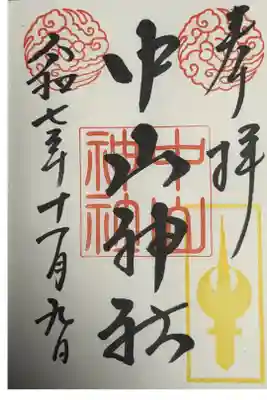 奉拝
中山神社
中山神社
令和七年十一月九日